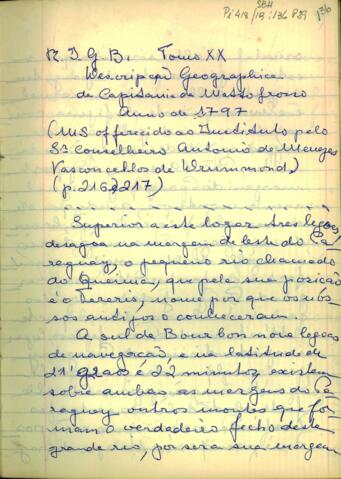 SBH
Pi 418 / 19:136 P29
136
R. I. G. B., Tomo XX
Descripção Geographica
da Capitania de Matto Grosso
Anno de 1797
(MS offerecido ao Instituto pelo
Sr. Conselheiro Antonio de Menezes
Vasconcellos de Drummond)
(p. 216, 217)
Superior a este logar tres legoas
desagoa na margem de leste do Pa-
raguay, o pequeno rio chamado
do Queima, que pela sua posição
é o Tereris, nome por que os nos-
sos antigos o conheceram.
A sul de Bourbon nove legoas
de navegação, e na latitude de
21 gráos e 22 minutos, existem
sobre ambas as margens do Pa-
raguay outros montes que for-
mam o verdadeiro fecho deste
grande rio, pois será sua margem